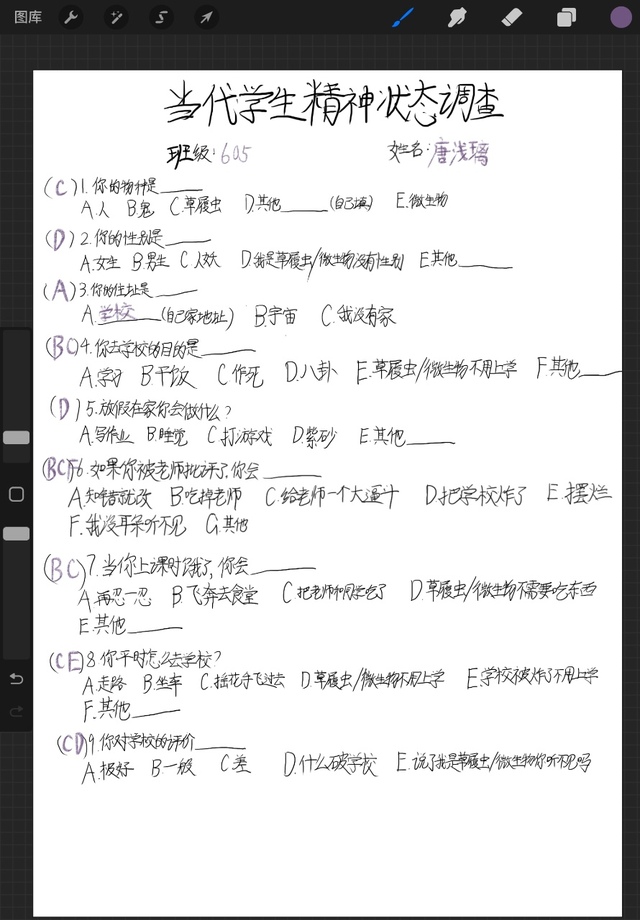 图库
当代学生精神状态调查
班级:605 姓名:唐浅璃
(C)1.你的物种是____
A.人 B.鬼 C.草履虫 D.其他____(自己填) E.微生物
(D)2.你的性别是____
A.女生 B.男生 C.人妖 D.我是草履虫/微生物没有性别 E.其他____
(A)3.你的住址是____
A.学校(自己家地址) B.宇宙 C.我没有家
(BC)4.你去学校的目的是____
A.学习 B.干饭 C.作死 D.八卦 E.草履虫/微生物不用上学 F.其他____
(D)5.放假在家你会做什么?
A.写作业 B.睡觉 C.打游戏 D.紫砂 E.其他____
(BCF)6.如果你被老师批评了,你会____
A.知错就改 B.吃掉老师 C.给老师一个大逼斗 D.把学校炸了 E.摆烂
F.我没耳朵听不见 G.其他
(BC)7.当你上课时饿了,你会____
A.再忍一忍 B.飞奔去食堂 C.把老师和同学吃了 D.草履虫/微生物不需要吃东西
E.其他____
(CE)8.你平时怎么去学校?
A.走路 B.坐车 C.摇花手飞过去 D.草履虫/微生物不用上学 E.学校被炸了不用上学
F.其他____
(CD)9.你对学校的评价____
A.极好 B.一般 C.差 D.什么破学校 E.说了我是草履虫/微生物你听不见吗